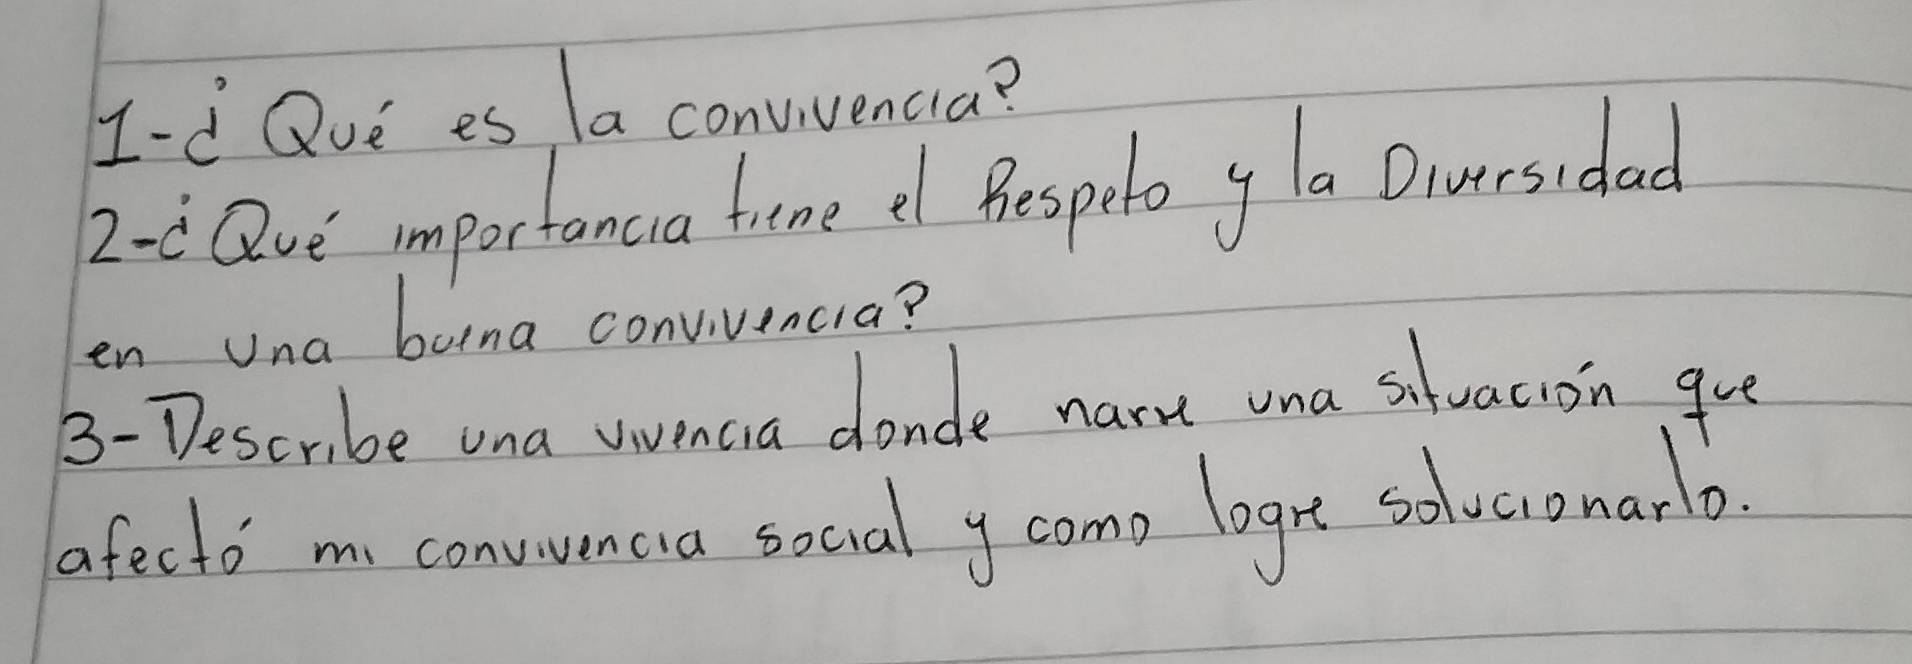 1-¿Qué es la convivencia?
2-¿Qué importancia tiene el Respeto y la Diversidad
en una buena convivencia?
3-Describe una vivencia donde narre una situación que
afectó mi convivencia social y como logre solucionarlo.